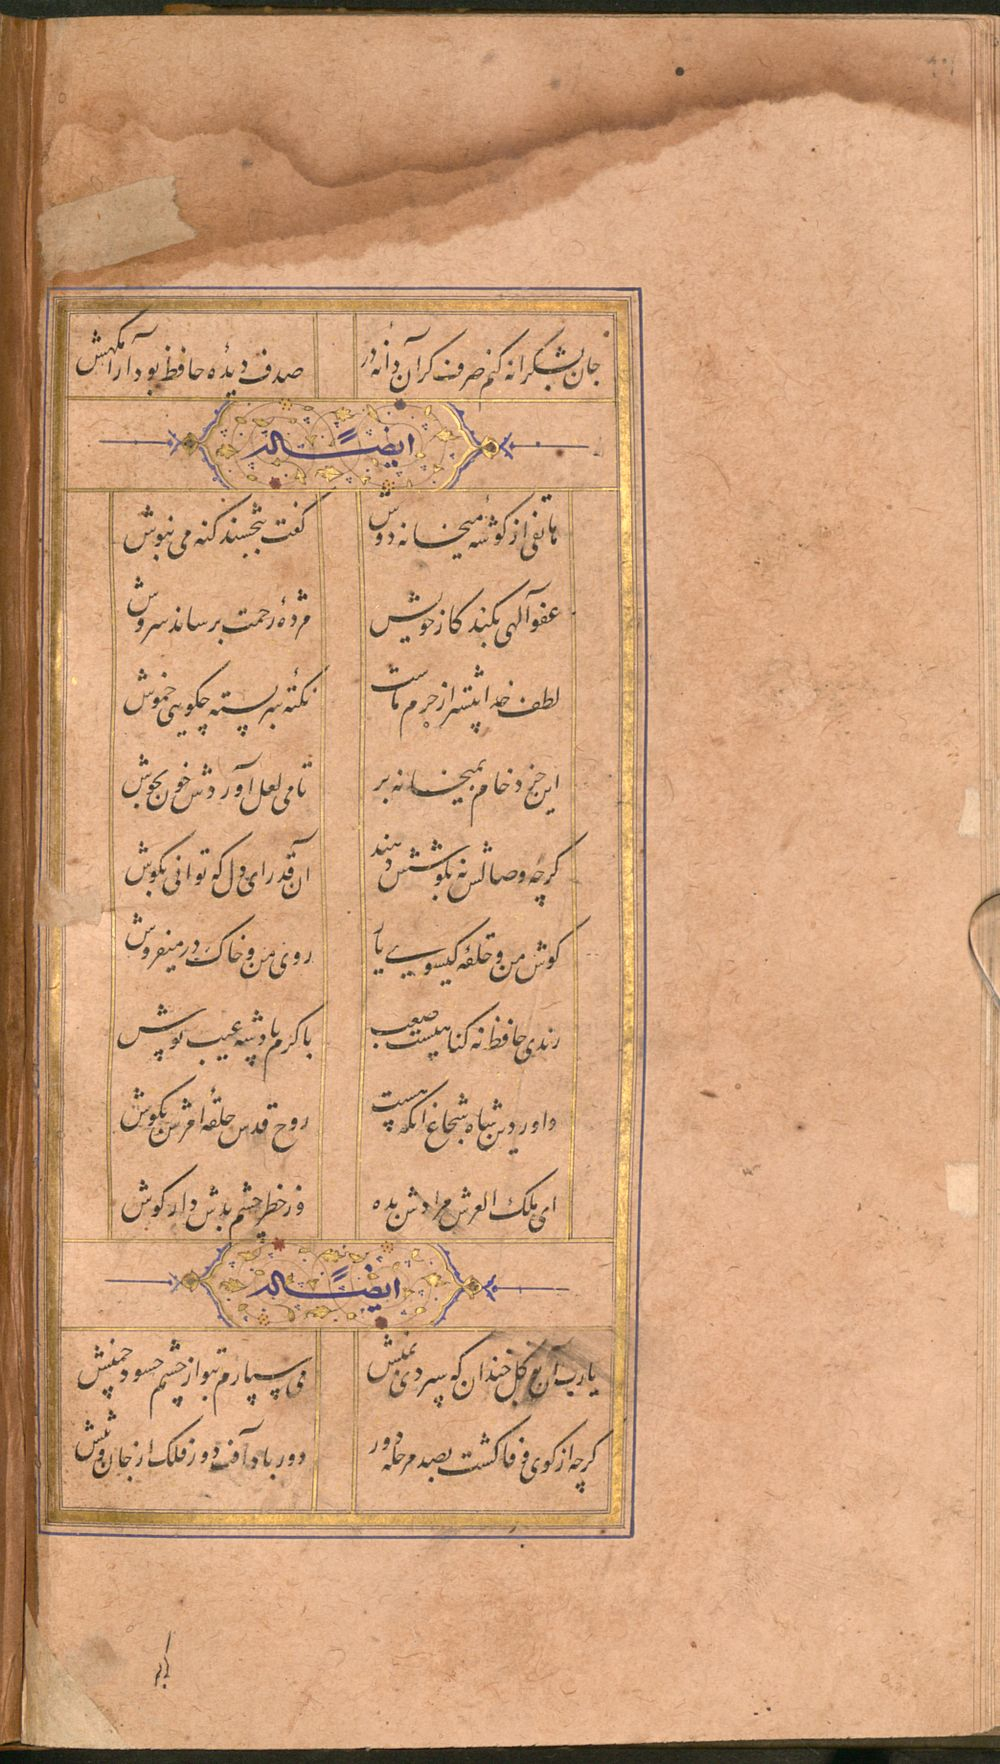 جان بشکرانه کنم صرف کر آن دانهٔ در صدف دیدهٔ حافظ بود آرامکهش
ایضاً له
هاتفی از کوشهٔ میخانه دوش کفت ببخشند کنه می بنوش
عفو آلهی بکند کار خویش مژدهٔ رحمت برساند سروش
لطف خدا بیشتر از جرم ماست نکتهٔ سربسته چکویی خموش
این خرد خام بمیخانه بر تا می لعل آوردش خون بجوش
کرچه وصالش نه بکوشش دهند آن قدر ای دل که توانی بکوش
کوش من و حلقهٔ کیسوی یار روی من و خاک در میفروش
رندی حافظ نه کناهیست صعب با کرم پادشه عیب پوش
داور دین شاه شجاع آنکه هست روح قدس حلقهٔ امرش بکوش
ای ملک العرش مرادش بده وز خطر چشم بدش دار کوش
ایضاً له
یارب آن نو کل خندان که سپردی بمنش می سپارم بتو از چشم حسود چمنش
کرچه از کوی وفا کشت بصد مرحله دور دور باد آفت دور فلک از جان و تنش